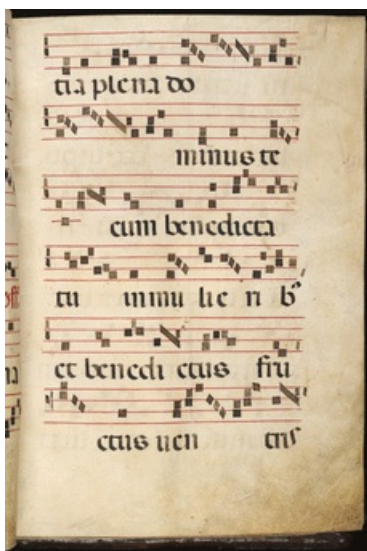 tia plena do
minus te
cum benedicta
tu in mu lie ri b⁹
et benedi ctus fru
ctus uen tris